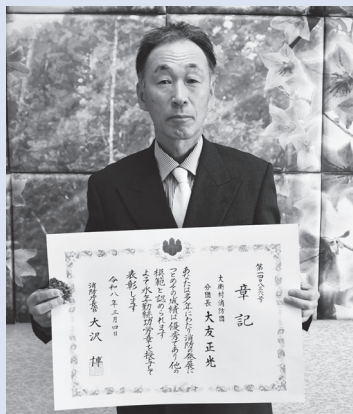 第一四八六号
章記
大衡村消防団
分団長 大友正光
あなたは多年にわたり消防の発展に
つとめその成績は優秀であり他の
模範と認められます
よって永年勤続功労章を授与して
表彰します
令和八年三月四日
消防庁長官 大沢博